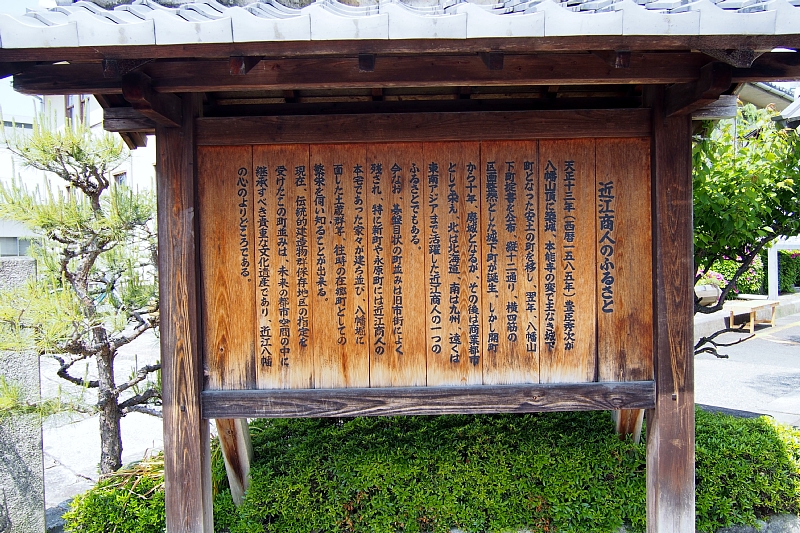 近江商人のふるさと
天正十三年(西暦一五八五年)豊臣秀次が
八幡山頂に築城、本能寺の変で主なき城下
町となった安土の町を移し、翌年、八幡山
下町掟書を公布、縦十二通り、横四筋の
区画整然とした城下町が誕生、しかし開町
から十年、廃城となるが、その後は商業都市
として栄え、北は北海道、南は九州、遠くは
東南アジアまで活躍した近江商人の一つの
ふるさとでもある。
今なお、碁盤目状の町並みは旧市街によく
残され、特に新町や永原町には近江商人の
本宅であった家々が建ち並び、八幡堀に
面した土蔵群等、往時の在郷町としての
繁栄を伺い知ることが出来る。
現在、伝統的建造物群保存地区の指定を
受けたこの町並みは、未来の都市空間の中に
継承すべき貴重な文化遺産であり、近江八幡
の心のよりどころである。